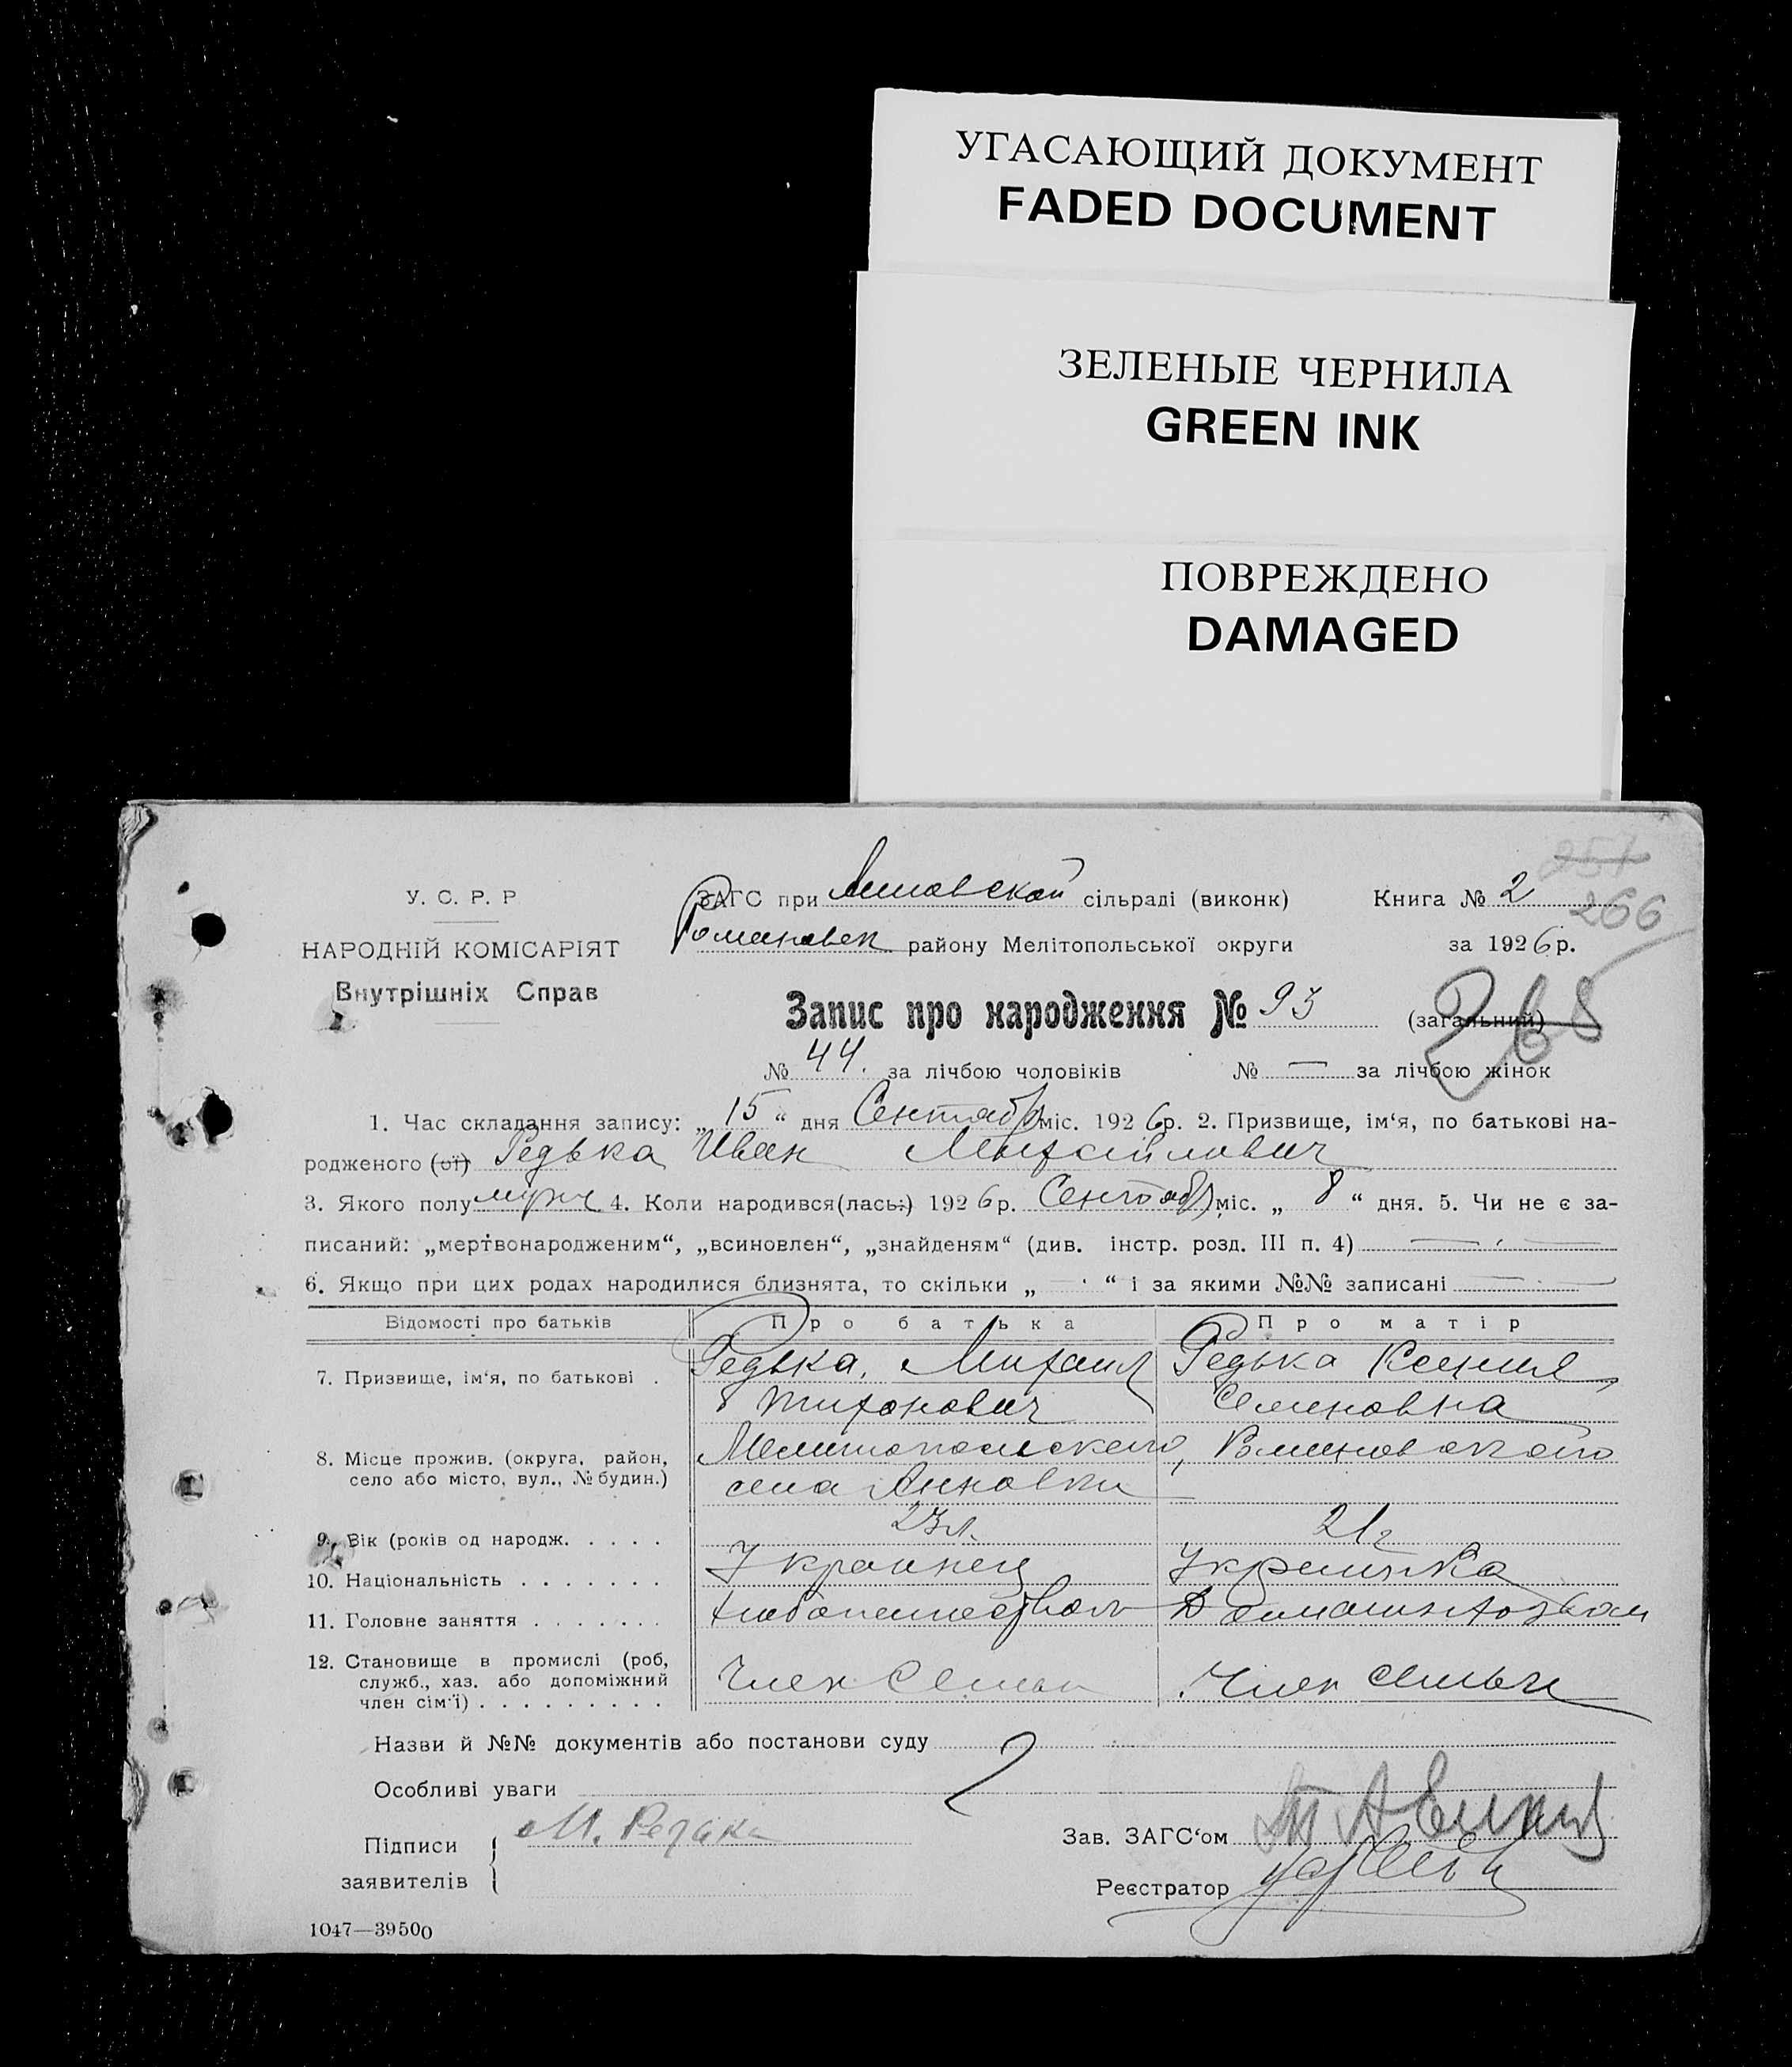 УГАСАЮЩИЙ ДОКУМЕНТ
FADED DOCUMENT
ЗЕЛЕНЫЕ ЧЕРНИЛА
GREEN INK
ПОВРЕЖДЕНО
DAMAGED
257
У. С. Р. Р ЗАГС при сільраді (виконк) Книга № 2 266
НАРОДНІЙ КОМІСАРІЯТ Романовск району Мелітопольської округи за 1926 р.
Внутрішніх Справ
Запис про народження № 93 (загальний) 268
№ 44. за лічбою чоловіків № — за лічбою жінок
1. Час складання запису: „15“ дня Сентабр міс. 1926 р. 2. Призвище, ім‘я, по батькові на-
родженого (ої) Редька Иван Михайлович
3. Якого полу муж 4. Коли народився(лась:) 1926 р. Сентабр міс. „8“ дня. 5. Чи не є за-
писаний: „мертвонародженим“, „всиновлен“, „знайденям“ (див. інстр. розд. III п. 4) —
6. Якщо при цих родах народилися близнята, то скільки „—“ і за якими №№ записані —
Відомості про батьків Про батька Про матір
7. Призвище, ім‘я, по батькові . Редька, Михаил Редька Ксения
Тихонович Семеновна
8. Місце прожив. (округа, район, Мелитопольского,
село або місто, вул., № будин.) села Анновки
9. Вік (років од народж. . . . . 23 л. 21 г
10. Національність . . . . . . . Украинец Украинка
11. Головне заняття . . . . . . . Хлебопашеством Домашнхозвом
12. Становище в промислі (роб, служб., хаз. або допоміжний член сім‘ї) . . . . . . . . . Член Семьи Член семьи
Назви й №№ документів або постанови суду
Особливі уваги
Підписи М. Редька Зав. ЗАГС‘ом
заявителів Реєстратор
1047—39500